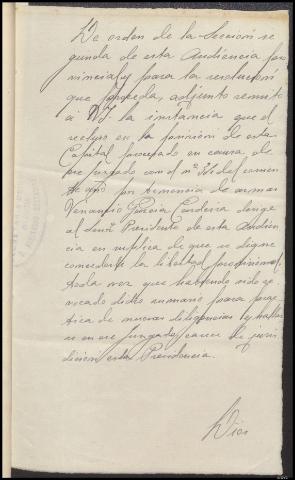 De orden de la Sección se
gunda de esta Audiencia pro
vincial y para la resolución
que proceda, adjunto remito
á V.I. la instancia que el
recluso en la prisión de esta
Capital procesado en causa de
ese juzgado con el nº 36 del
de año por tenencia de armas
Venancio García dirige
al Iltmo Presidente de esta Audien
cia en suplica de que se digne
concederle la libertad provisional
toda vez que habiendo sido re
vocado dicho sumario para prac
tica de nuevas diligencias y hallar
se en ese Juzgado, carece de juris
dicción esta Presidencia.
Dios